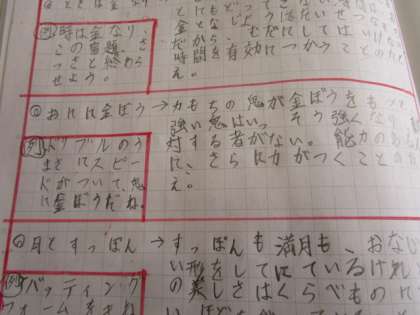 金となじようにたいせつな
だから、むだにしてはいけな
時間を有効につかうことのた
え。
例 時は金なり、
この宿題、さ
っさと終わら
せよう。
おにに金ぼう→力もちの鬼が金ぼうをもって
強い鬼はいっそう強くなり
対する者がない。能力のある
に、さらに力がつくことの
え。
例 ドリブルのう
まさにスピー
ドがついて、鬼
に金ぼうだね。
月とすっぽん→すっぽんも満月も、おなじ
い形をしてにているけれ
の美しさはくらべものに
例 バッティング